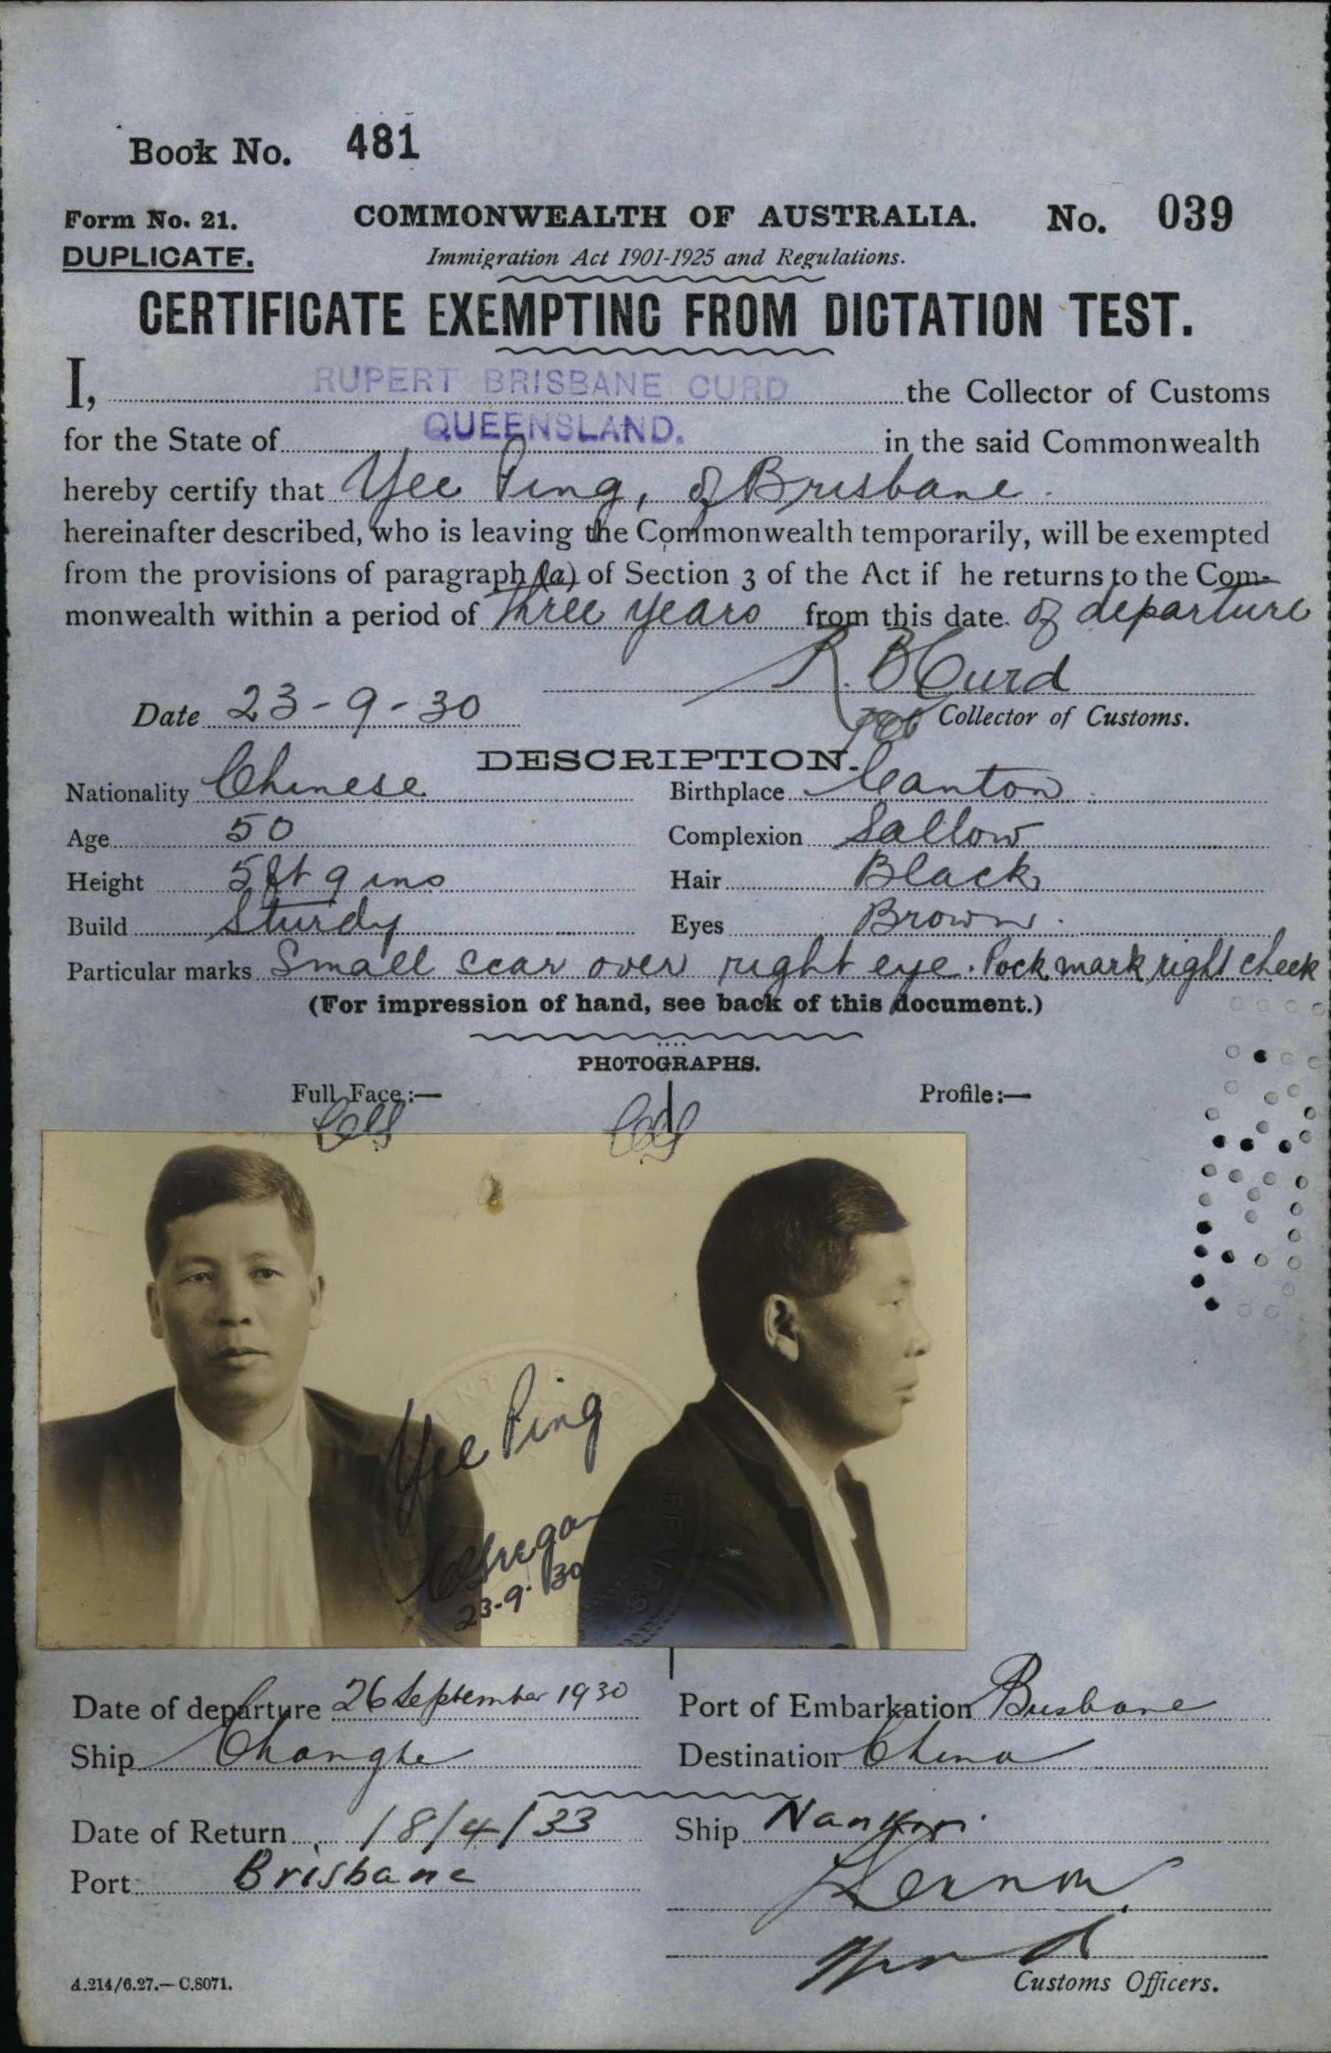 Book No. 481
Form No. 21. COMMONWEALTH OF AUSTRALIA. No. 039
DUPLICATE. Immigration Act 1901-1925 and Regulations.
CERTIFICATE EXEMPTING FROM DICTATION TEST.
I, RUPERT BRISBANE CURD the Collector of Customs
for the State of QUEENSLAND. in the said Commonwealth
hereby certify that Yee Ping, of Brisbane.
hereinafter described, who is leaving the Commonwealth temporarily, will be exempted
from the provisions of paragraph (a) of Section 3 of the Act if he returns to the Com-
monwealth within a period of three years from this date of departure
R. B Curd
Date 23-9-30 Collector of Customs.
DESCRIPTION.
Nationality Chinese Birthplace Canton
Age 50 Complexion Sallow
Height 5 ft 9 ins Hair Black
Build Sturdy Eyes Brown.
Particular marks Small scar over right eye. Pock mark right cheek
(For impression of hand, see back of this document.)
PHOTOGRAPHS.
Full Face:— Profile:—
Yee Ping
23-9-30
Date of departure 26 September 1930 Port of Embarkation Brisbane
Ship Changte Destination China
Date of Return 18/4/33 Ship
Port Brisbane
A.214/6.27.—C.8071. Customs Officers.